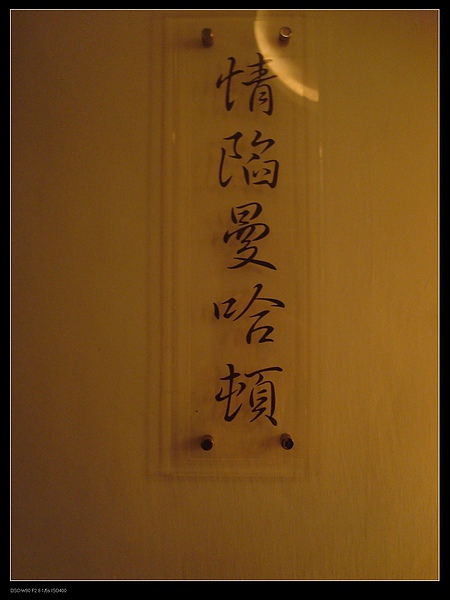 情陷曼哈頓
DSC-W90 F2.8 1/8s ISO400